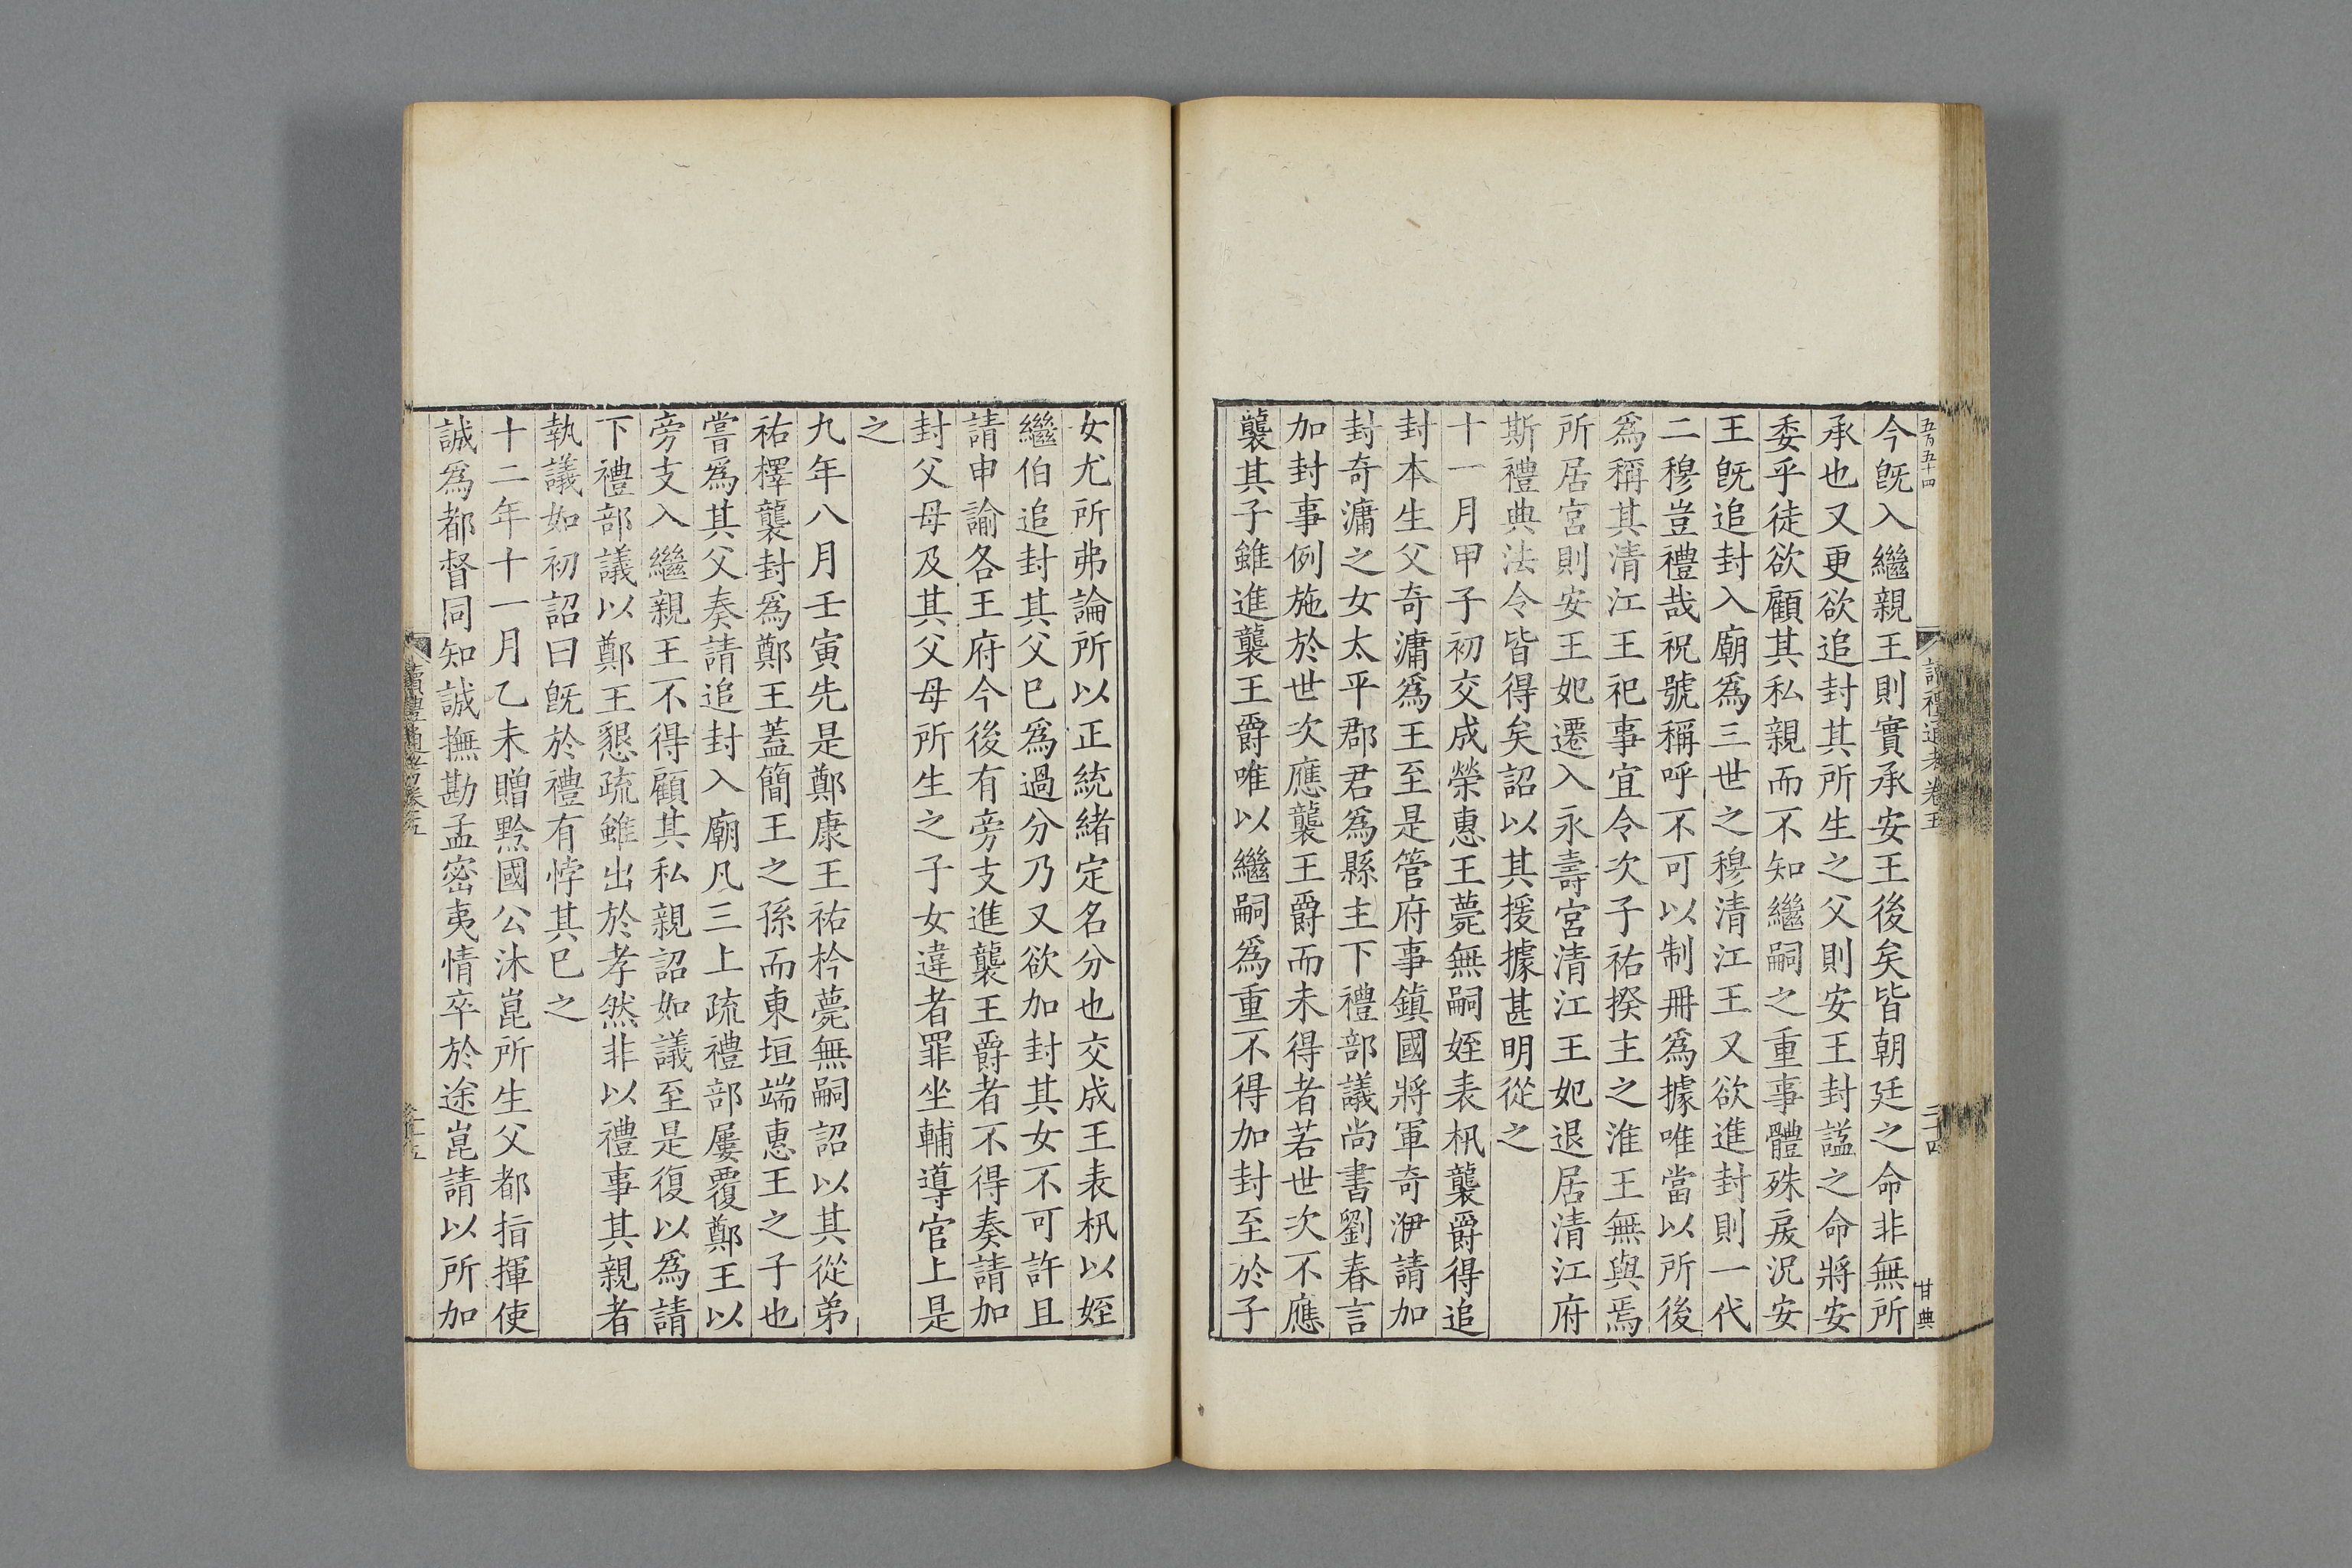 五百五十四
讀禮通考卷五
二十四
甘典
今旣入繼親王則實承安王後矣皆朝廷之命非無所
承也又更欲追封其所生之父則安王封諡之命將安
委乎徒欲顧其私親而不知繼嗣之重事體殊戾況安
王旣追封入廟爲三世之穆清江王又欲進封則一代
二穆豈禮哉祝號稱呼不可以制冊爲據唯當以所後
爲稱其清江王祀事宜令次子祐揆主之淮王無與焉
所居宮則安王妃遷入永壽宮清江王妃退居清江府
斯禮典法令皆得矣詔以其援據甚明從之
十一月甲子初交成榮惠王薨無嗣姪表枛襲爵得追
封本生父奇㵂爲王至是管府事鎮國將軍奇洢請加
封奇㵂之女太平郡君爲縣主下禮部議尚書劉春言
加封事例施於世次應襲王爵而未得者若世次不應
襲其子雖進襲王爵唯以繼嗣爲重不得加封至於子
女尤所弗論所以正統緒定名分也交成王表枛以姪
繼伯追封其父已爲過分乃又欲加封其女不可許且
請申諭各王府今後有旁支進襲王爵者不得奏請加
封父母及其父母所生之子女違者罪坐輔導官上是
之
九年八月壬寅先是鄭康王祐枔薨無嗣詔以其從弟
祐檡襲封爲鄭王蓋簡王之孫而東垣端惠王之子也
嘗爲其父奏請追封入廟凡三上疏禮部屢覆鄭王以
旁支入繼親王不得顧其私親詔如議至是復以爲請
下禮部議以鄭王懇疏雖出於孝然非以禮事其親者
執議如初詔曰旣於禮有悖其已之
十二年十一月乙未贈黔國公沐崑所生父都指揮使
誠爲都督同知誠撫勘孟密夷情卒於途崑請以所加
讀禮通考卷五